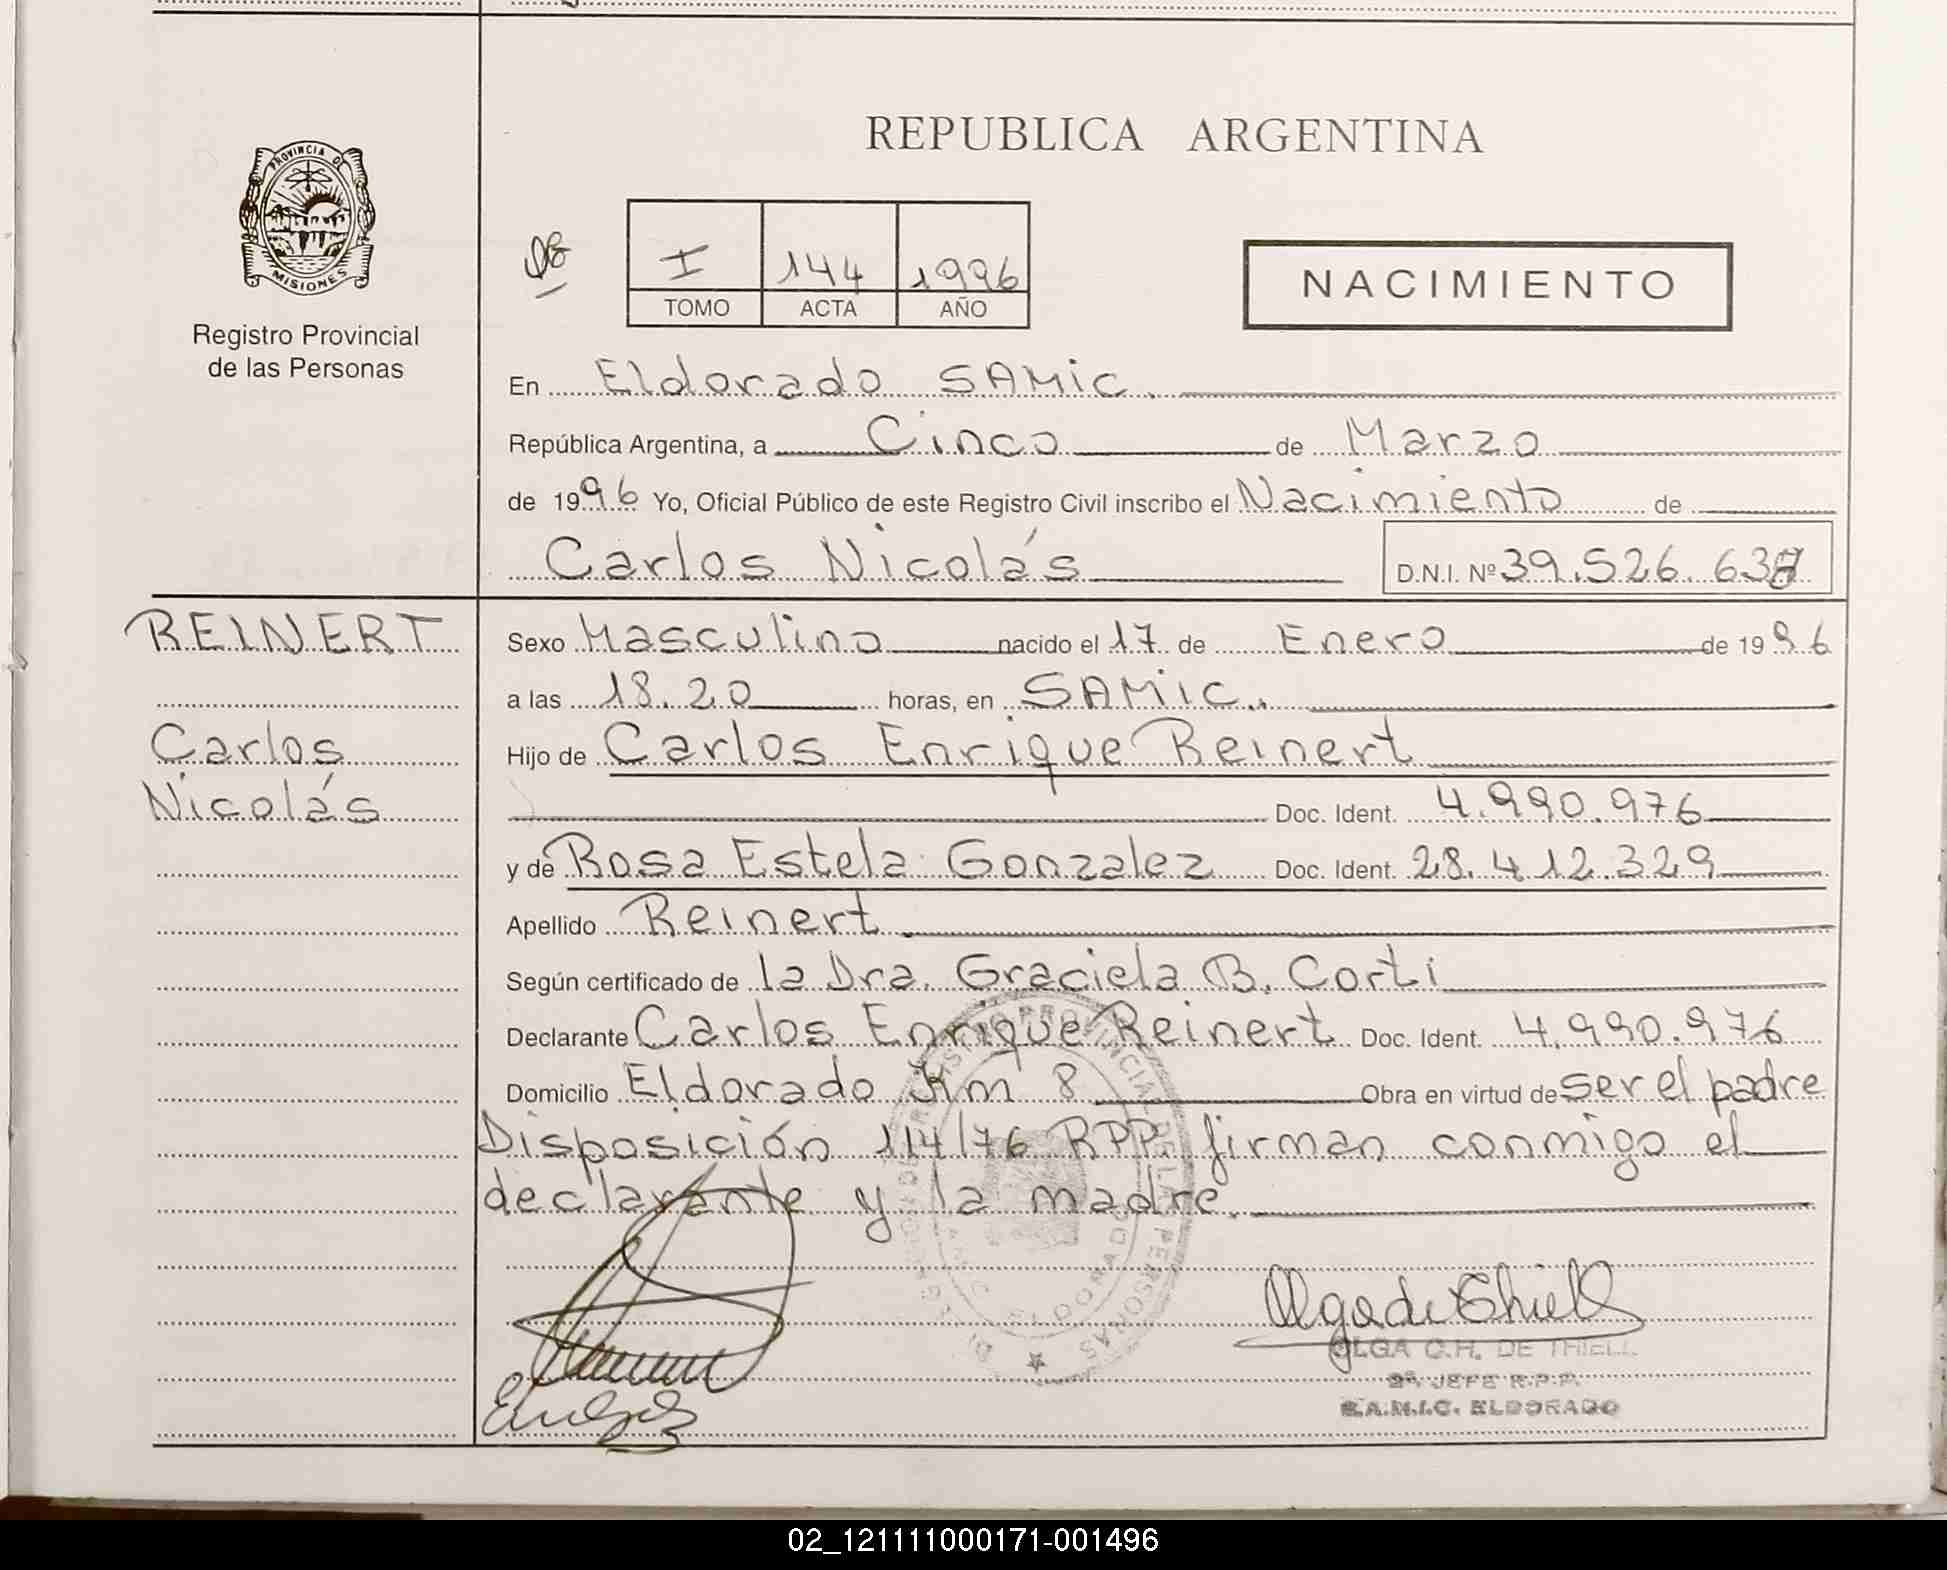 REPUBLICA ARGENTINA
PROVINCIA DE
MISIONES
Registro Provincial
de las Personas
I 144 1996
TOMO ACTA AÑO
NACIMIENTO
En Eldorado SAMiC.
República Argentina, a Cinco de Marzo
de 1996 Yo, Oficial Público de este Registro Civil inscribo el Nacimiento de
Carlos Nicolás D.N.I. Nº 39.526.637
REINERT
Carlos
Nicolás
Sexo Masculino nacido el 17 de Enero de 1996
a las 18.20 horas, en SAMiC.
Hijo de Carlos Enrique Reinert
Doc. Ident. 4.990.976
y de Rosa Estela Gonzalez Doc. Ident. 28.412.329
Apellido Reinert
Según certificado de la Dra. Graciela B. Corti
Declarante Carlos Enrique Reinert Doc. Ident. 4.990.976
Domicilio Eldorado Km 8 Obra en virtud de ser el padre
Disposición 114/76 RPP. firman conmigo el
declarante y la madre.
Olga de Thiell
OLGA C.H. DE THIELL
2º JEFE R.P.P.
S.A.M.I.C. ELDORADO
02_121111000171-001496